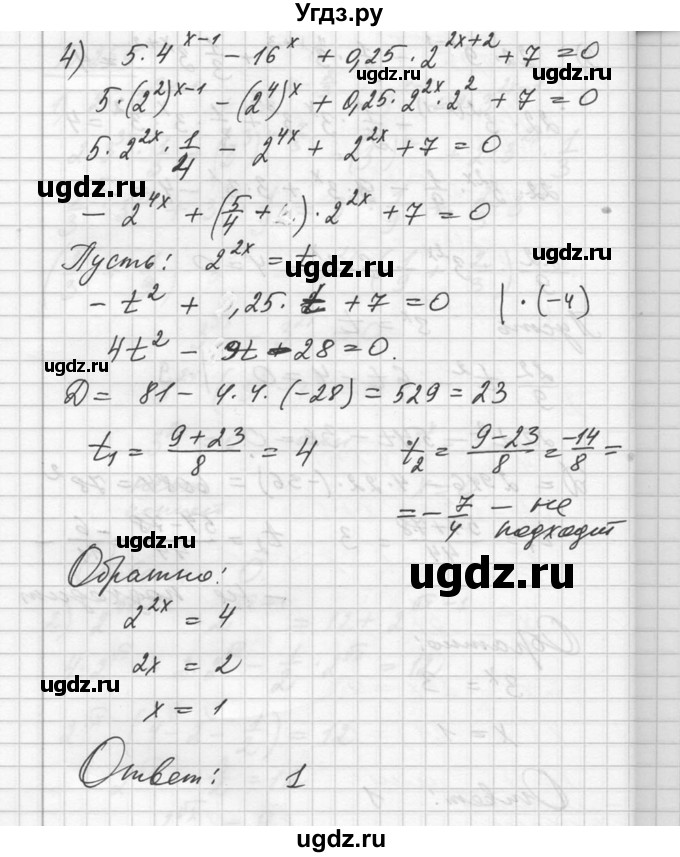 Угдз.ру
4) 5·4^(x-1) - 16^x + 0,25·2^(2x+2) + 7 = 0
ugdz.ru ugdz.ru
5·(2^2)^(x-1) - (2^4)^x + 0,25·2^(2x)·2^2 + 7 = 0
5·2^(2x)·1/4 - 2^(4x) + 2^(2x) + 7 = 0
ugdz.ru
- 2^(4x) + (5/4 + )·2^(2x) + 7 = 0
Пусть: 2^(2x) = t
ugdz.ru ugdz.ru
- t^2 + ,25·t + 7 = 0 |·(-4)
4t^2 - 9t - 28 = 0.
ugdz.ru
D = 81 - 4·4·(-28) = 529 = 23
t1 = (9+23)/8 = 4 t2 = (9-23)/8 = -14/8 =
ugdz.ru
= -7/4 - не подходит
ugdz.ru
Обратно:
ugdz.ru
2^(2x) = 4
2x = 2
ugdz.ru
x = 1
Ответ: 1
ugdz.ru ugdz.ru
ugdz.ru